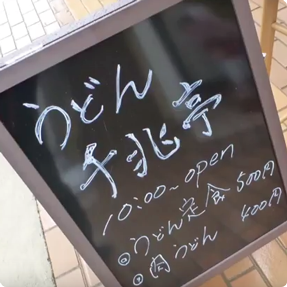 うどん
千兆亭
10:00~open
◎うどん定食 500円
◎肉うどん 400円